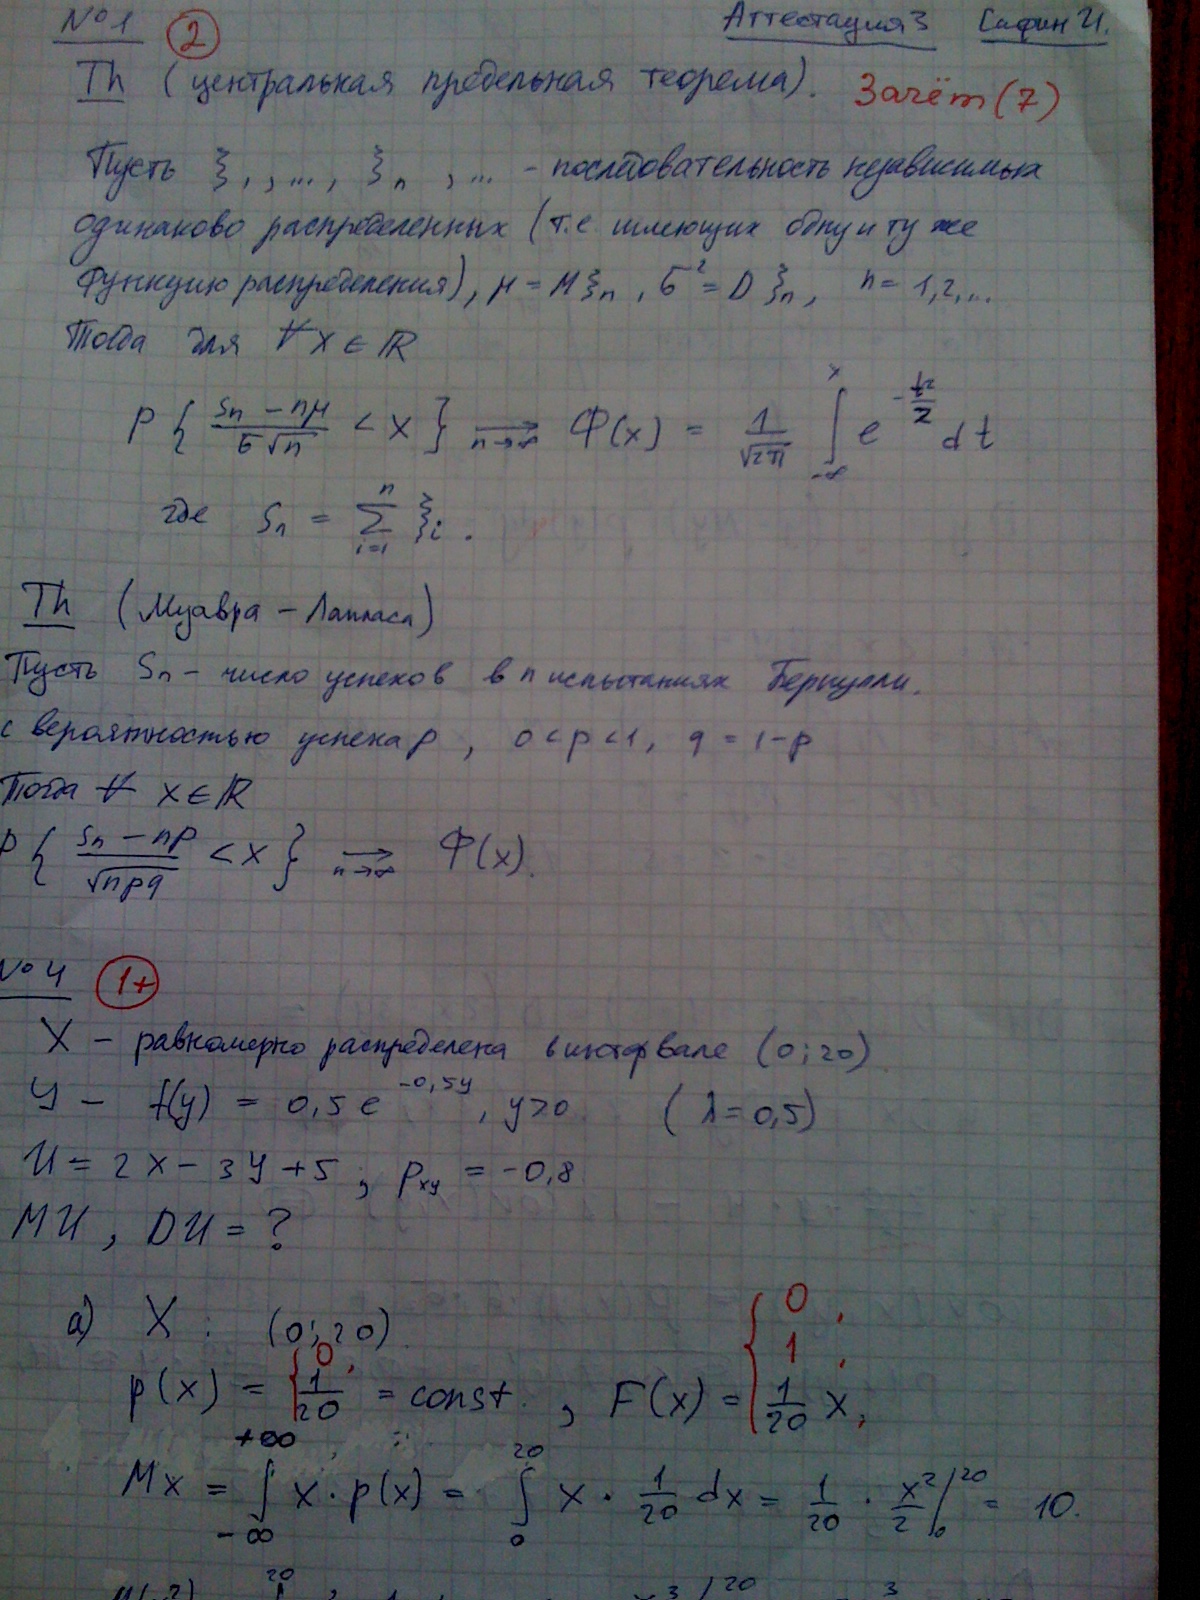 №1 ② Аттестация 3 Сафин И.
Th (центральная предельная теорема). Зачёт (7)
Пусть ξ₁, ..., ξₙ, ... - последовательность независимых
одинаково распределенных (т.е имеющих одну и ту же
функцию распределения), μ = Mξₙ, σ² = Dξₙ, n = 1,2,...
Тогда для ∀ x ∈ ℝ
P { (Sₙ - nμ)/(σ√n) < x } →(n→∞) Φ(x) = 1/√2π ∫_{-∞}^{x} e^{-t²/2} dt
где Sₙ = ∑_{i=1}^{n} ξᵢ.
Th (Муавра - Лапласа)
Пусть Sₙ - число успехов в n испытаниях Бернулли.
с вероятностью успеха p, 0 < p < 1, q = 1-p
Тогда ∀ x ∈ ℝ
P { (Sₙ - np)/√npq < x } →(n→∞) Φ(x).
№4 1+
X - равномерно распределена в интервале (0; 20)
Y - f(y) = 0,5 e^{-0,5y}, y>0 (λ = 0,5)
U = 2X - 3Y + 5; ρxy = -0,8
MU, DU = ?
а) X : (0; 20)
p(x) = { 0, 1/20 = const. , F(x) = { 0, 1, 1/20 x,
Mx = ∫_{-∞}^{+∞} x · p(x) = ∫_{0}^{20} x · 1/20 dx = 1/20 · x²/2 |₀²⁰ = 10.